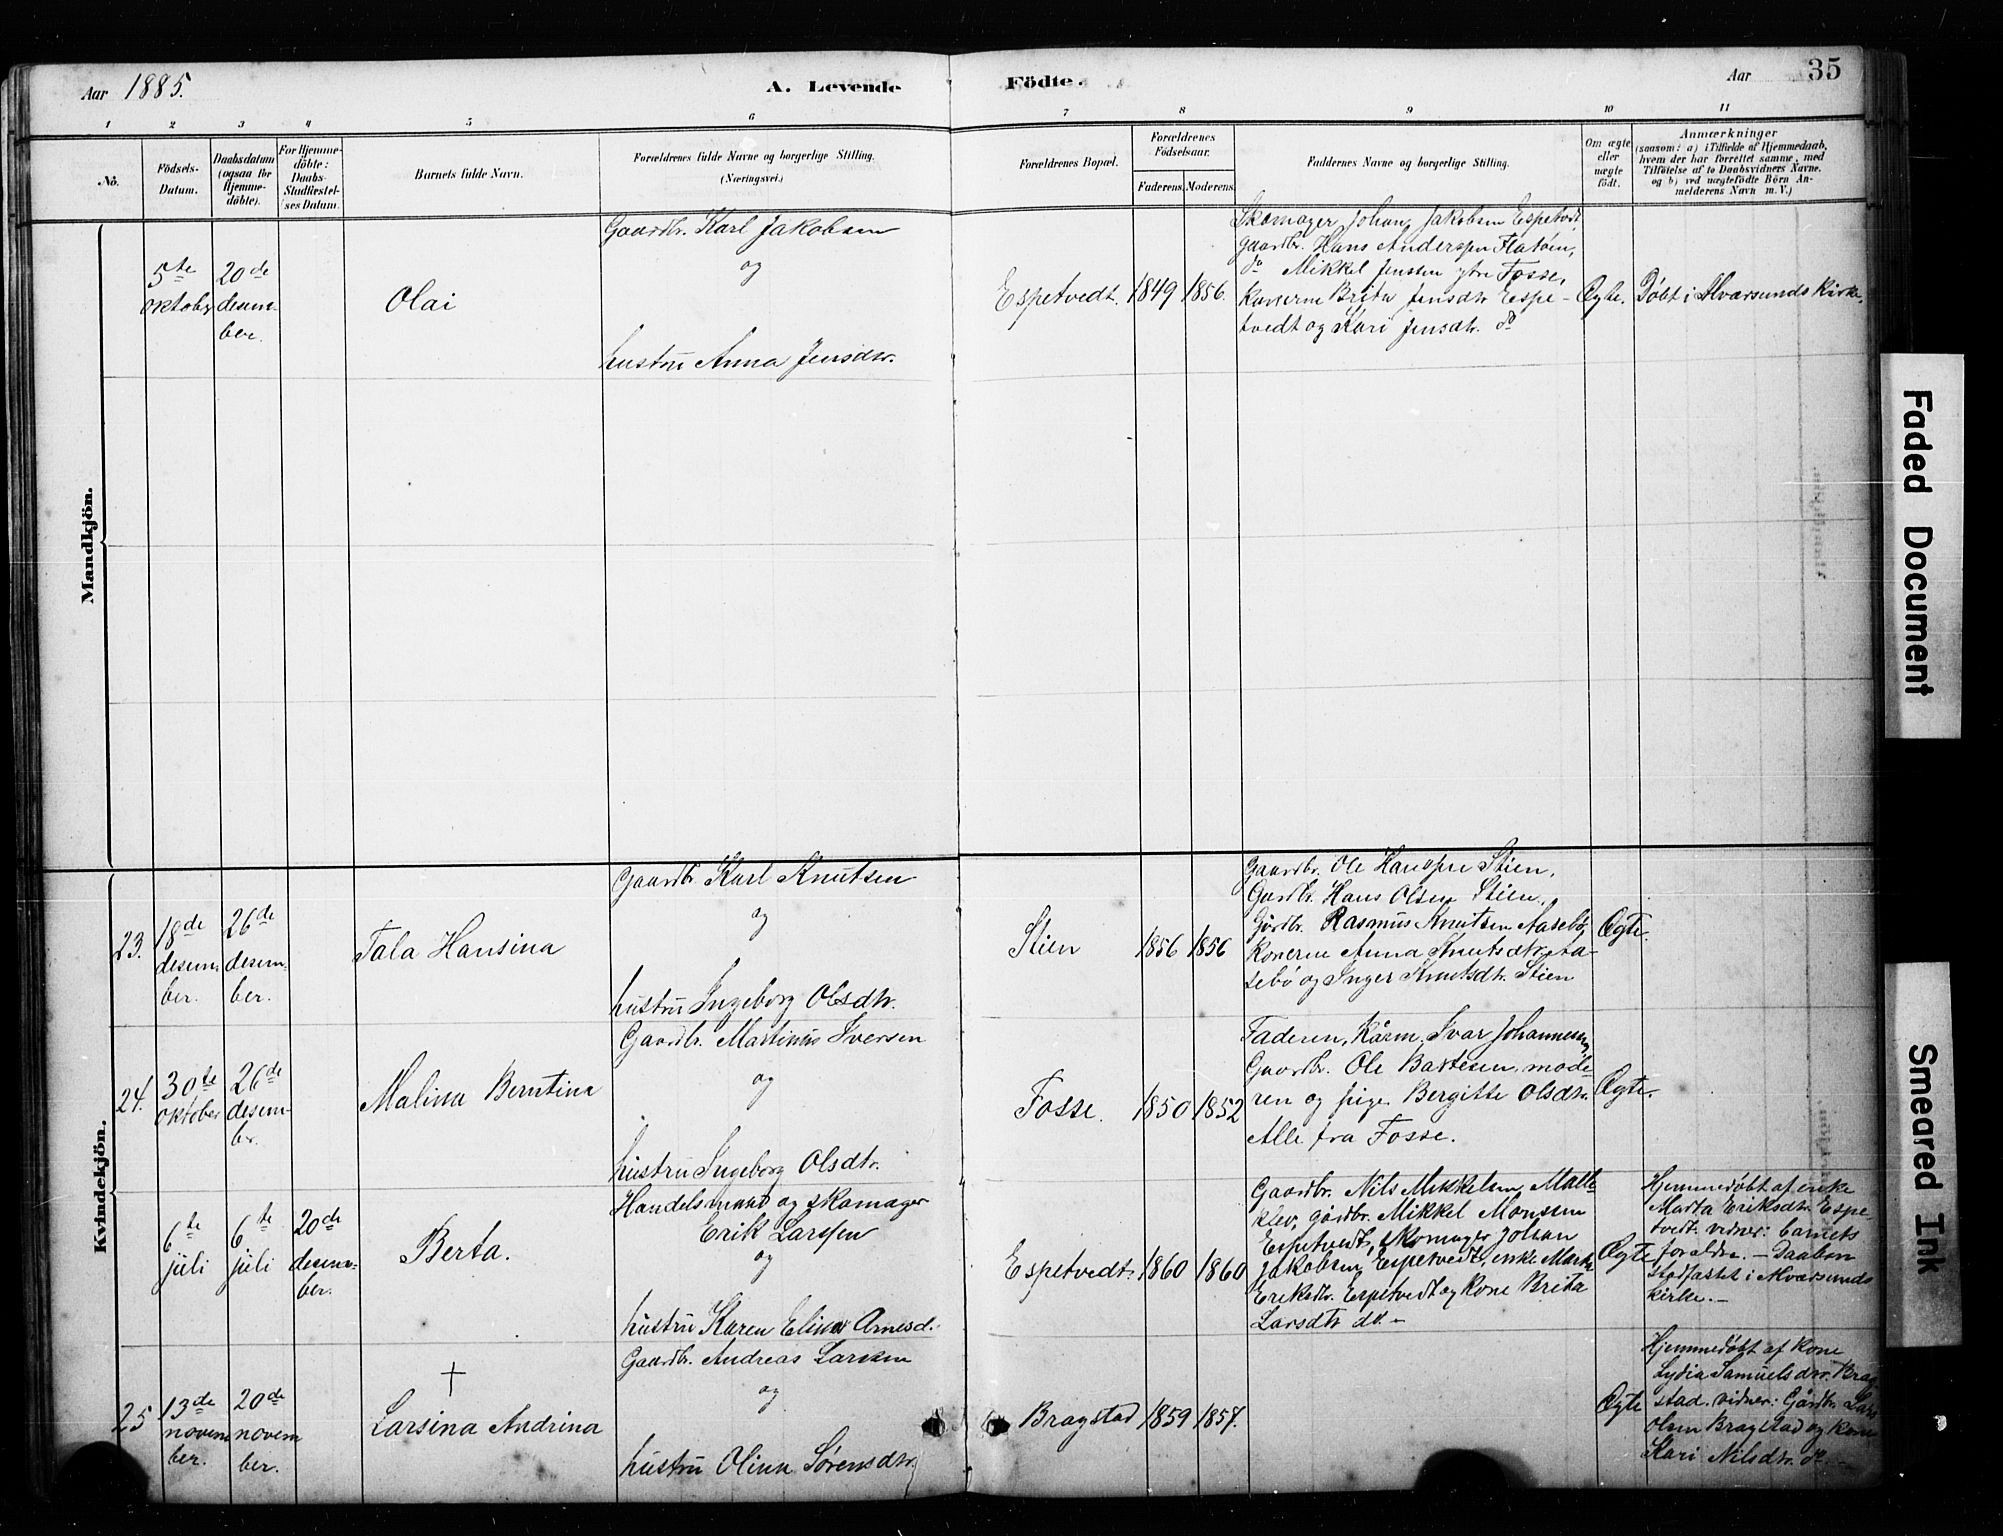 Aar 1885.
A. Levende
Födte.
Aar
35
1 2 3 4 5 6 7 8 9 10 11
No.
Födsels-
Datum.
Daabsdatum
(ogsaa for
Hjemme-
döbte).
For Hjemme-
döbte:
Daabs-
Stadfæstel-
ses Datum.
Barnets fulde Navn.
Forældrenes fulde Navne og borgerlige Stilling.
(Næringsvei.)
Forældrenes Bopæl.
Forældrenes
Födselsaar.
Faderens. Moderens.
Faddernes Navne og borgerlige Stilling.
Om ægte
eller
uægte
födt.
Anmærkninger
(saasom: a) i Tilfælde af Hjemmedaab,
hvem der har forrettet samme, med
Tilföielse af to Daabsvidners Navne.
og b) ved uægtefödte Börn An-
melderens Navn m. V.)
Mandkjön.
5te
oktober
20de
desem-
ber.
Olai
Gaardbr. Karl Jakobsen
og
hustru Anna Jensdtr.
Espetvedt.
1849
1856.
Skomager Johan Jakobsen Espetvedt,
gaardbr. Hans Anderssen Flatøen,
do Mikkel Jenssen ytre Fosse,
Konerne Brita Jensdtr Espe-
tvedt og Kari Jensdtr. do
Ægte.
Døbt i Alværsunds Kirke.
Kvindekjön.
23.
18de
desem-
ber.
26de
desem-
ber.
Tala Hansina
Gaardbr Karl Knutsen
og
hustru Ingeborg Olsdtr.
Stien
1856
1856
Gaardbr. Ole Hanssen Stien,
Gardbr. Hans Olsen Stien,
Gårdbr. Rasmus Knutsen Aasebø,
Konerne Anna Knutsdtr Aa-
sebø og Inger Knutsdtr. Stien
Ægte.
24.
30te
oktober
26de
desem-
br.
Malina Berntina
Gaardbr. Martinus Iversen
og
hustru Ingeborg Olsdtr.
Fosse.
1850
1852
Faderen, Kårm. Ivar Johannesen,
Gaardbr. Ole Bartesen, mode-
ren og pige Bergitte Olsdtr.
Alle fra Fosse.
Ægte.
6te
juli
6te
juli
20de
desem-
ber.
Berta.
Handelsmand og skomager
Erik Larssen
og
hustru Karen Elina Arnesd.
Espetvedt.
1860
1860
Gaardbr. Nils Mikkelsen Mølle-
klev, gårdbr. Mikkel Monsen
Espetvedt, skomager Johan
Jakobsen Espetvedt, enke Marta
Eriksdtr. Espetvedt og Kone Brita
Larsdtr do. -
Ægte
Hjemmedøbt af enke
Marta Eriksdtr. Espe-
tvedt. vidner: barnets
foraldre. - Daaben
stadfæstet i Alværsunds
kirke. -
25
13de
novem
ber.
20de
novem
ber.
Larsina Andrina
Gaardbr. Andreas Larsen
og
hustru Olina Sørensdtr.
Bragstad
1859
1857.
Ægte
Hjemmedøbt af Kone
Lydia Samuelsdtr. Brag
stad. vidner: Gårdbr. Lars
Olsen Bragstad og Kone
Kari Nilsdtr. do. -
Faded Document
Smeared Ink